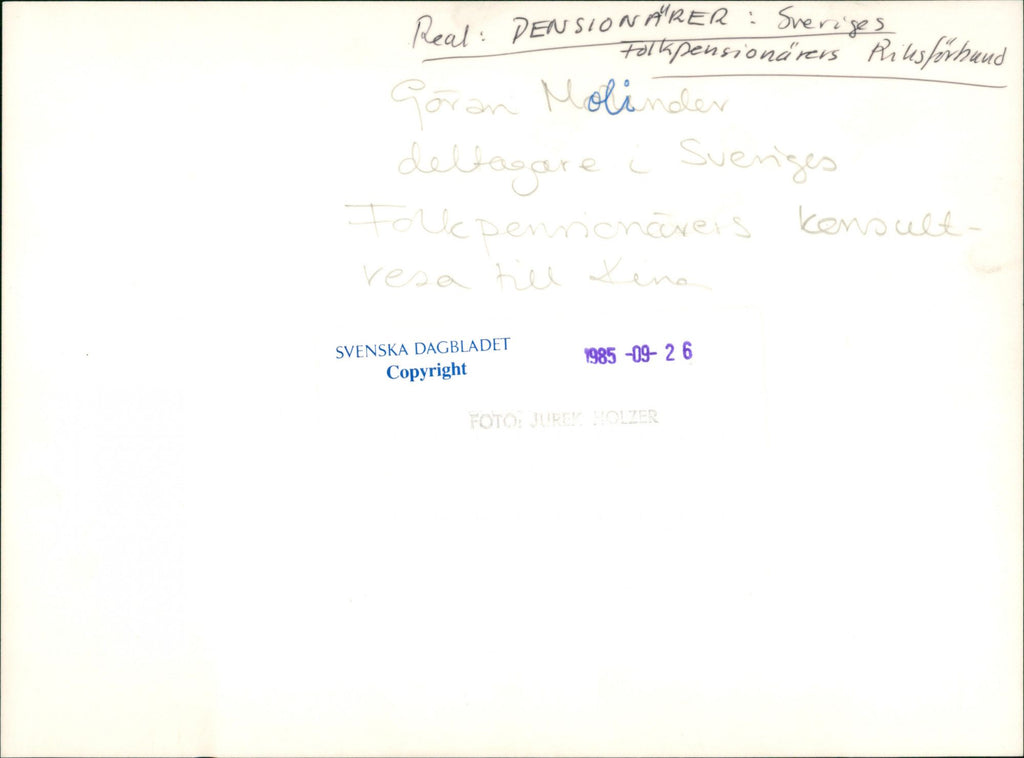 Real: PENSIONÄRER: Sveriges
Folkpensionärers Riksförbund
Göran Molinder
deltagare i Sveriges
Folkpensionärers konsult-
resa till Kina
SVENSKA DAGBLADET
Copyright
1985-09-26
FOTO: JUREK HOLZER